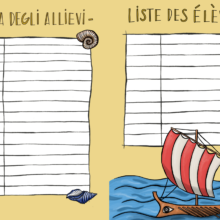 A DEGLI ALLIEVI-
LISTE DES ÉLÈ